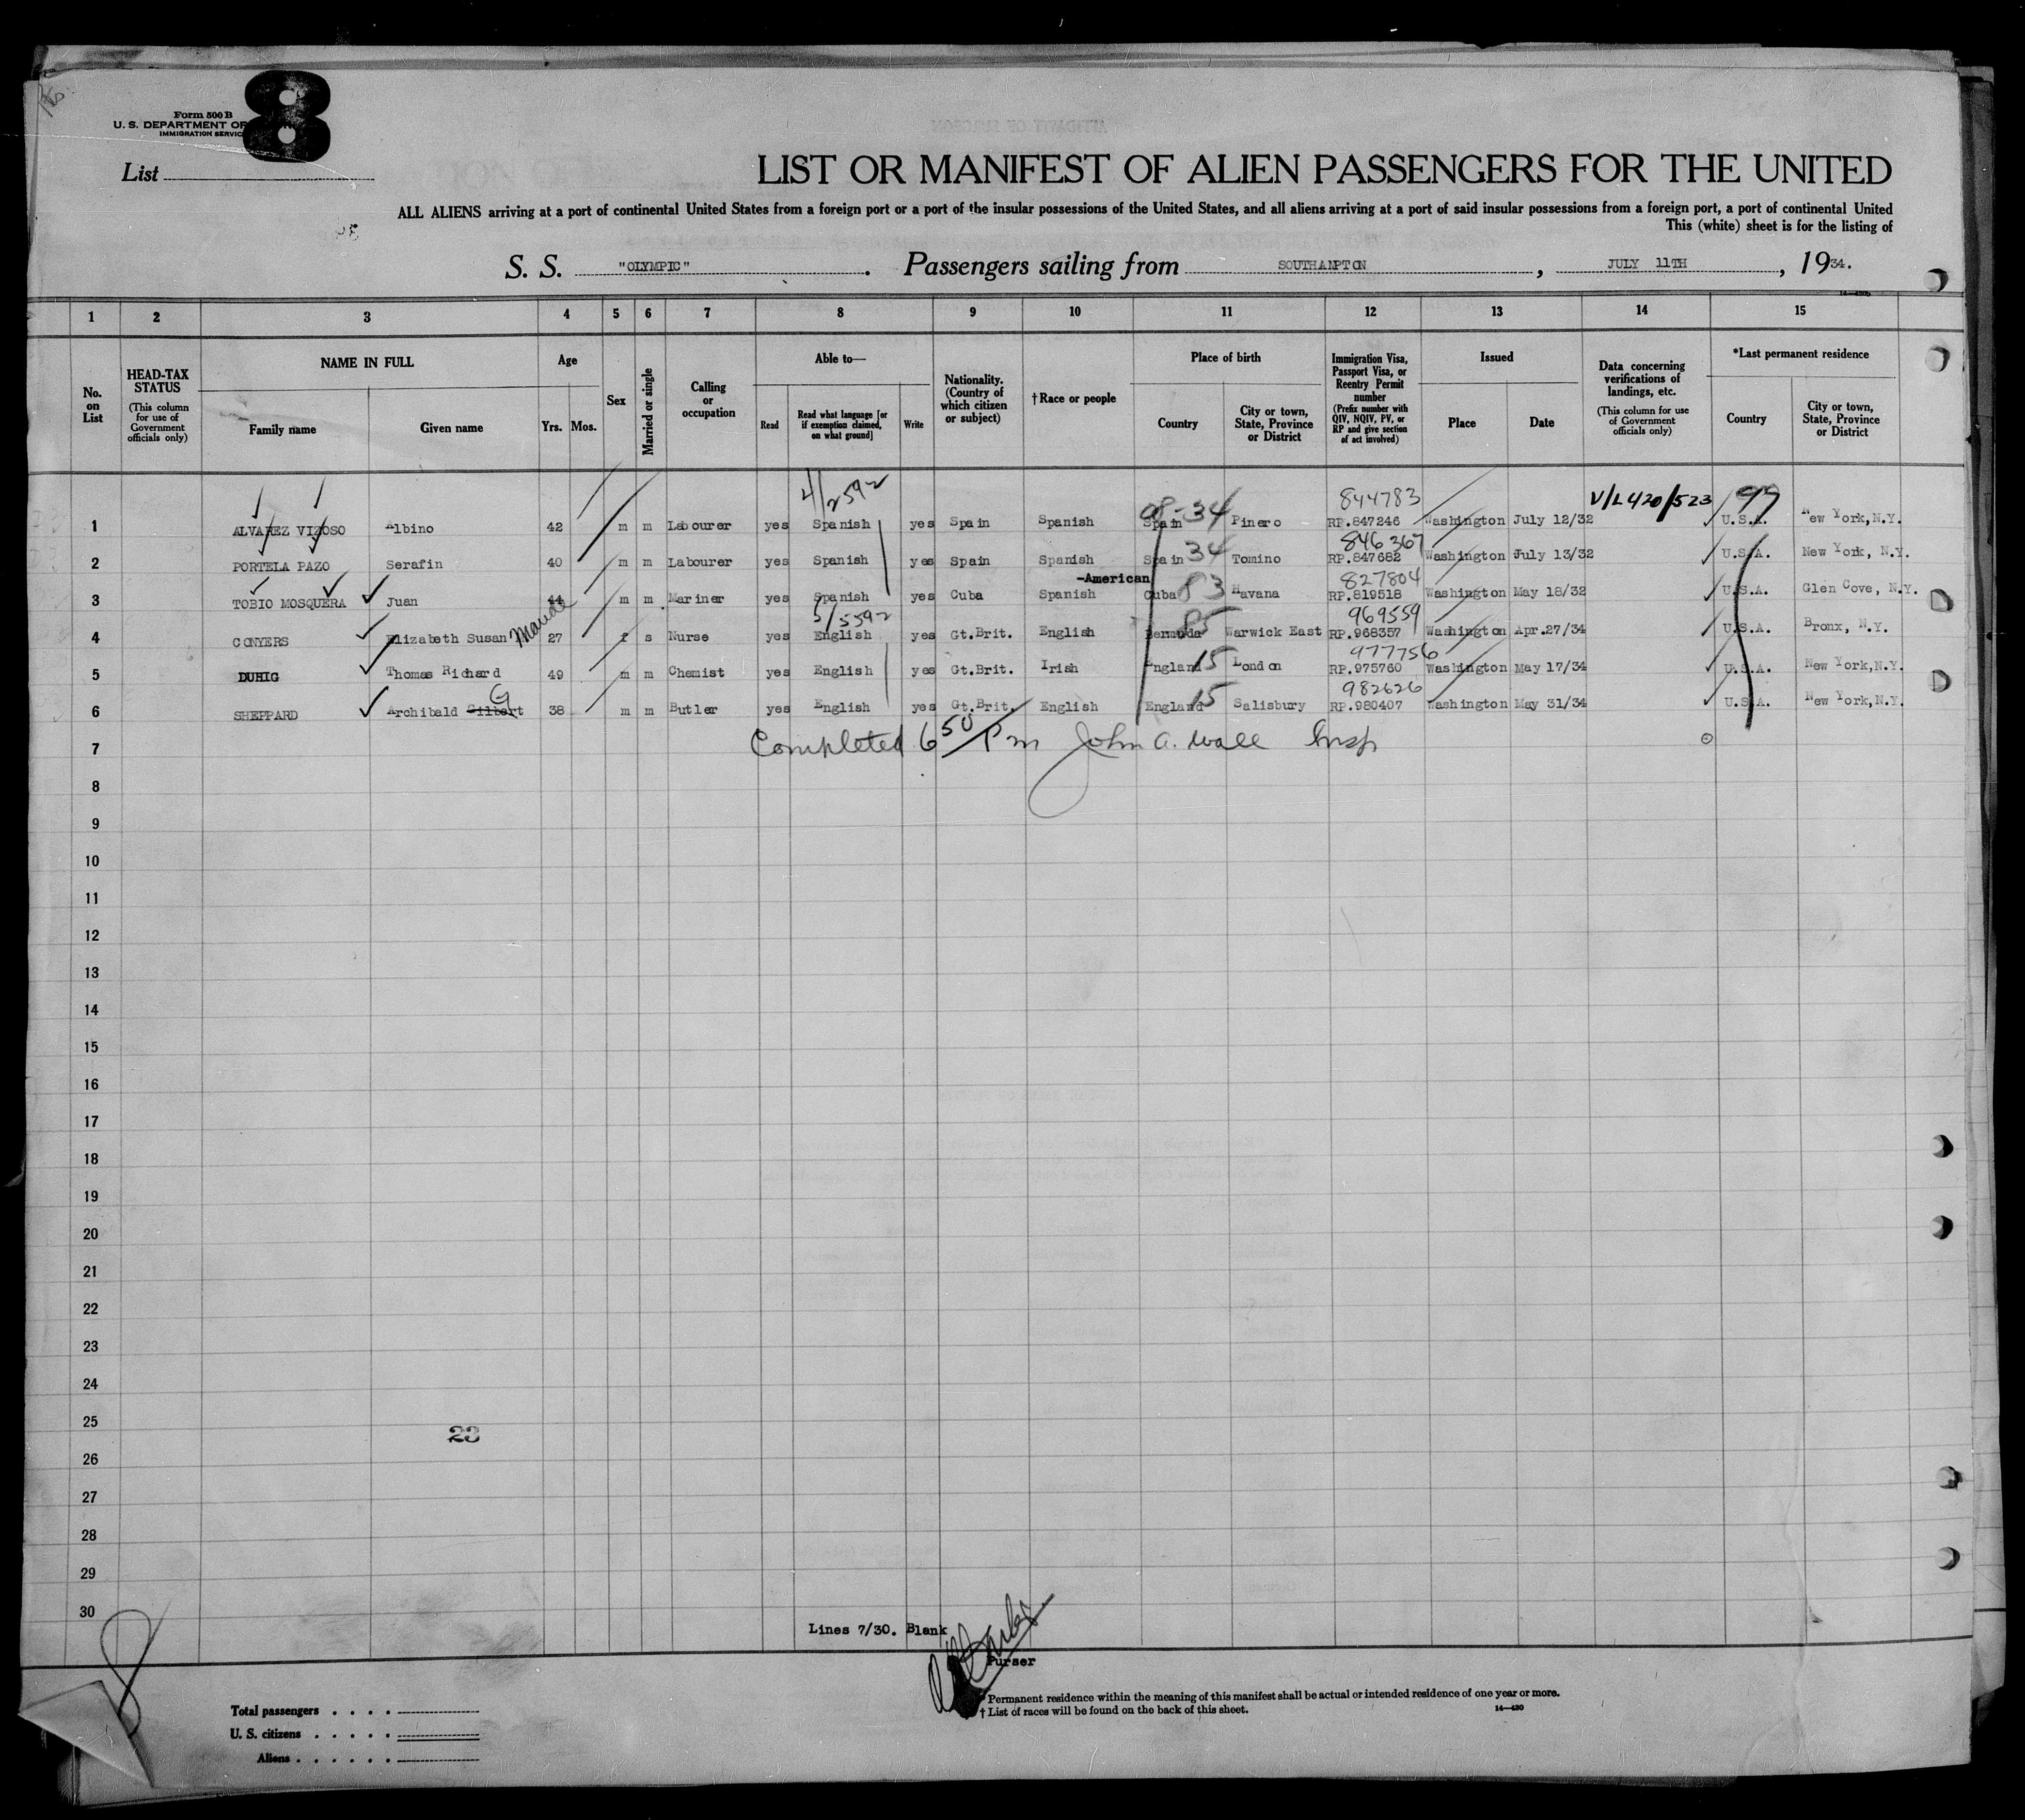 8
Form 500 B
U. S. DEPARTMENT OF
IMMIGRATION SERVICE
List
LIST OR MANIFEST OF ALIEN PASSENGERS FOR THE UNITED
ALL ALIENS arriving at a port of continental United States from a foreign port or a port of the insular possessions of the United States, and all aliens arriving at a port of said insular possessions from a foreign port, a port of continental United
This (white) sheet is for the listing of
S. S. "OLYMPIC". Passengers sailing from SOUTHAMPTON, JULY 11TH, 1934.
1 2 3 4 5 6 7 8 9 10 11 12 13 14 15
No. on List
HEAD-TAX STATUS
(This column for use of Government officials only)
NAME IN FULL
Family name
Given name
Age
Yrs. Mos.
Sex
Married or single
Calling or occupation
Able to—
Read
Read what language [or if exemption claimed, on what ground]
Write
Nationality. (Country of which citizen or subject)
†Race or people
Place of birth
Country
City or town, State, Province or District
Immigration Visa, Passport Visa, or Reentry Permit number
(Prefix number with QIV, NQIV, PV, or RP and give section of act involved)
Issued
Place
Date
Data concerning verifications of landings, etc.
(This column for use of Government officials only)
*Last permanent residence
Country
City or town, State, Province or District
4/2592 08-34 844783 V/L 420/523 99
1 ALVAREZ VIZOSO Albino 42 m m Labourer yes Spanish yes Spain Spanish Spain Pinero RP.847246 Washington July 12/32 U.S.A. New York, N.Y.
34 846367
2 PORTELA PAZO Serafin 40 m m Labourer yes Spanish yes Spain Spanish Spain Tomino RP.847682 Washington July 13/32 U.S.A. New York, N.Y.
-American 83 827804
3 TOBIO MOSQUERA Juan 44 m m Mariner yes Spanish yes Cuba Spanish Cuba Havana RP.819518 Washington May 18/32 U.S.A. Glen Cove, N.Y.
5/5592 85 969559
4 CONYERS Elizabeth Susan Maude 27 f s Nurse yes English yes Gt.Brit. English Bermuda Warwick East RP.968357 Washington Apr.27/34 U.S.A. Bronx, N.Y.
15 977756
5 DUHIG Thomas Richard 49 m m Chemist yes English yes Gt.Brit. Irish England London RP.975760 Washington May 17/34 U.S.A. New York,N.Y.
G 15 982626
6 SHEPPARD Archibald Gilbert 38 m m Butler yes English yes Gt.Brit. English England Salisbury RP.980407 Washington May 31/34 U.S.A. New York,N.Y.
7 Completed 6 50 Pm John A. Wall Insp
8
9
10
11
12
13
14
15
16
17
18
19
20
21
22
23
24
25
23
26
27
28
29
30
Lines 7/30. Blank
Purser
Permanent residence within the meaning of this manifest shall be actual or intended residence of one year or more.
† List of races will be found on the back of this sheet.
14—430
Total passengers
U. S. citizens
Aliens
8